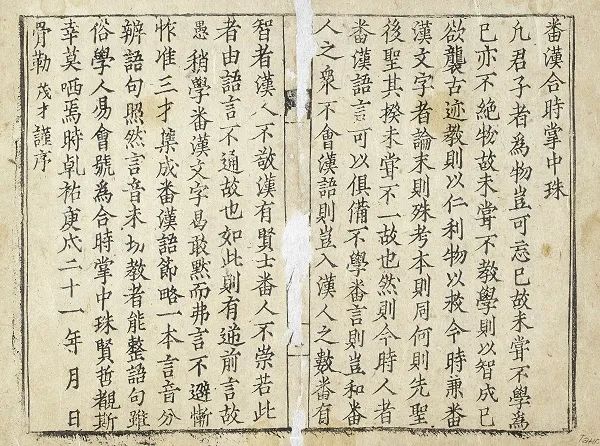 番漢合時掌中珠
凢君子者為物豈可忘已故未甞不學為
已亦不絶物故未甞不教學則以智成已
欲襲古迹教則以仁利物以救今時兼番
漢文字者論末則殊考本則同何則先聖
後聖其揆未甞不一故也然則今時人者
番漢語言可以俱備不學番言則豈和番
人之衆不會漢語則豈入漢人之數番有
智者漢人不敬漢有賢士番人不崇若此
者由語言不通故也如此則有逆前言故
愚稍學番漢文字曷敢黙而弗言不避慚
怍准三才集成番漢語節略一本言音分
辨語句照然言音未切教者能整語句雖
俗學人易會號為合時掌中珠賢哲覩斯
幸莫哂焉時乹祐庚戌二十一年 月 日
骨勒 茂才謹序